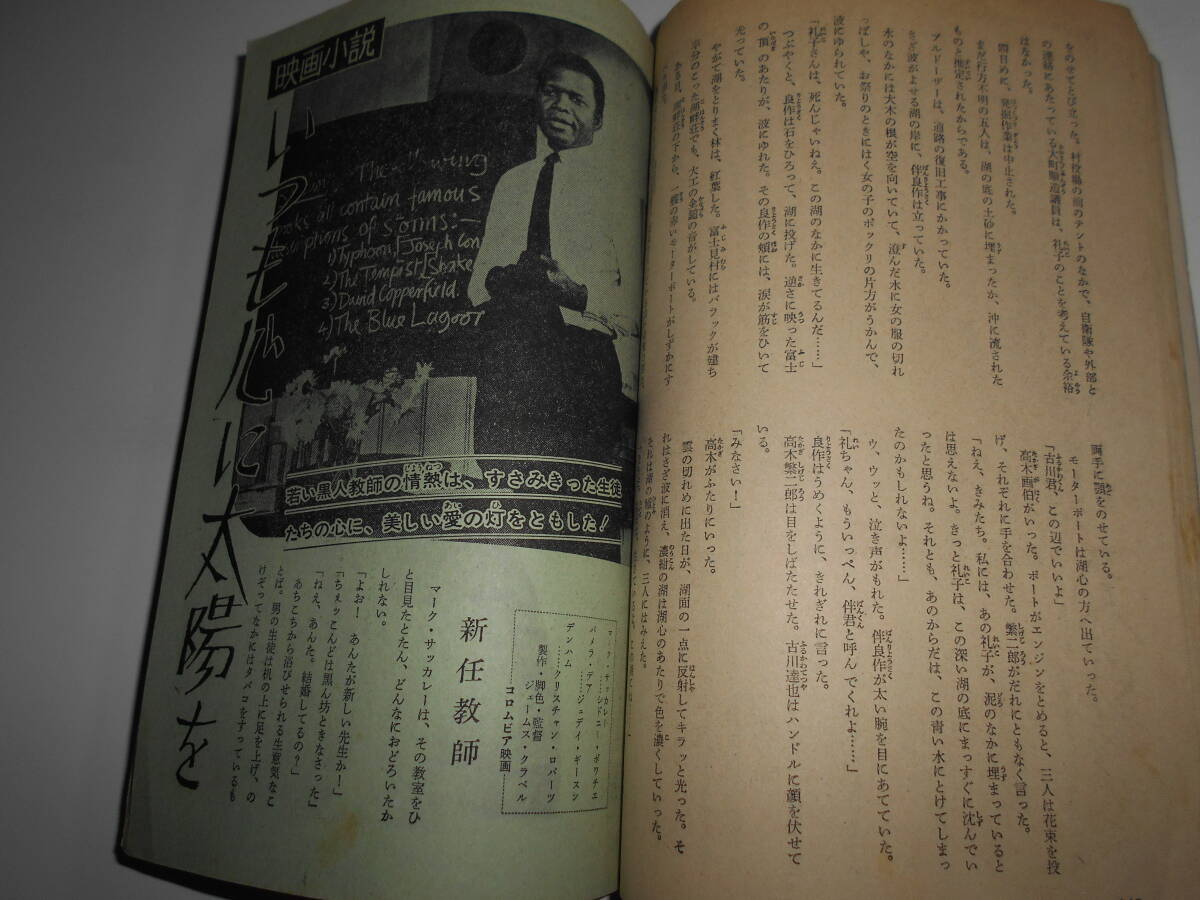 をのせてとび立った。村役場の前のテントのなかで、自衛隊や外部と
の連絡にあたっている大町県道議員は、礼子のことを考えている余裕
はなかった。
間目めに、発掘作業は中止された。
まだ行方不明の五人は、湖の底の土砂に埋まったか、沖に流された
ものと推定されたからである。
ブルドーザーは、道路の復旧工事にかかっていた。
さざ波がよせる湖の岸に、伴良作は立っていた。
水のなかには大木の根が空を向いていて、澄んだ水に女の服の切れ
っぱしや、お祭りのときにはく女の子のポックリの片方がうかんで、
波にゆられていた。
「礼子さんは、死んじゃいねえ。この湖のなかに生きてるんだ……」
つぶやくと、良作は石をひろって、湖に投げた。逆さに映った富士
の頂のあたりが、波にゆれた。その良作の頬には、涙が筋をひいて
光っていた。
やがて湖をとりまく林は、紅葉した。富士見村にはバラックが建ち
半分のこった湖畔荘でも、大工の金鎚の音がしている。
ある日、湖畔荘の下から、一艘の青いモーターボートがしずかにす
両手に顎をのせている。
モーターボートは湖心の方へ出ていった。
「古川君、この辺でいいよ」
高木画伯がいった。ボートがエンジンをとめると、三人は花束を投
げ、それぞれに手を合わせた。繁二郎がだれにともなく言った。
「ねえ、きみたち。私には、あの礼子が、泥のなかに埋まっていると
は思えないよ。きっと礼子は、この深い湖の底にまっすぐに沈んでい
ったと思うね。それとも、あのからだは、この青い水にとけてしまっ
たのかもしれないよ……」
ウ、ウッと、泣き声がもれた。伴良作が太い腕を目にあてていた。
「礼ちゃん、もういっぺん、伴君と呼んでくれよ……」
良作はうめくように、きれぎれに言った。
高木繁二郎は目をしばたたせた。古川達也はハンドルに顔を伏せて
いる。
「みなさい！」
高木がふたりにいった。
雲の切れめに出た日が、湖面の一点に反射してキラッと光った。そ
れはさざ波に消え、濃紺の湖は湖心のあたりで色を濃くしていった。
それは湖の瞳のように、三人にはみえた。
映画小説
いつも心に太陽を
The following
books all contain famous
descriptions of storms:—
1) Typhoon, Joseph Con
2) The Tempest, Shake
3) David Copperfield.
4) The Blue Lagoon
若い黒人教師の情熱は、すさみきった生徒
たちの心に、美しい愛の灯をともした！
マーク・サッカレー
……シドニー・ポワチエ
パメラ・デア
……ジュディ・ギースン
デンハム
……クリスチャン・ロバーツ
製作・脚色・監督
ジェームス・クラベル
コロムビア映画
新任教師
マーク・サッカレーは、その教室をひ
と目見たとたん、どんなにおどろいたか
しれない。
「よお！　あんたが新しい先生か！」
「ちぇッこんどは黒ん坊ときなさった」
「ねえ、あんた。結婚してるの？」
あちこちから浴びせられる生意気なこ
とば。男の生徒は机の上に足を上げ、の
けぞってなかにはタバコをすっているも